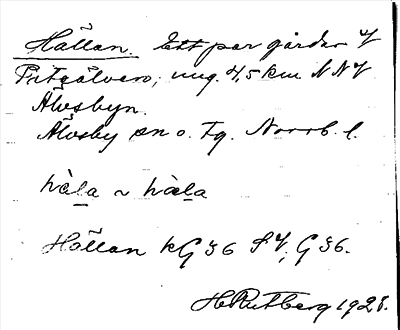 Hällan. Ett par gårder i
Piteälven, ung. 4,5 km NNV
Älvsbyn.
Älvsby sn o. tg. Norrb. l.
hàla ~ hàla
Hällan kG36 SV; G36.
H Rutberg 1928.